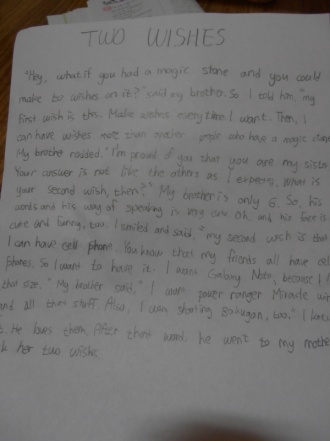 TWO WISHES
"Hey, what if you had a magic stone and you could
make to wishes on it?" said my brother. So I told him, "my
first wish is this. Make wishes everytim I want. Then, I
can have wishes more than another people who have a magic stone
My brother nodded. "I'm proud of you that you are my sister
Your answer is not like the others as I expects. What is
your second wish, then?" My brother is only 6. So, his
words and his way of speaking is very cute Oh, and his face is
cute and funny, too. I smiled and said, "my second wish is that
I can have cell phone. You know that my friends all have cell
phones. So I want to have it. I want Galaxy Note, because I
that size." My brother said, "I want power ranger Miracle
and all that stuff. Also, I am starting Bakugan, too."
He loves them. After those words he went to my mother
her two wishes.